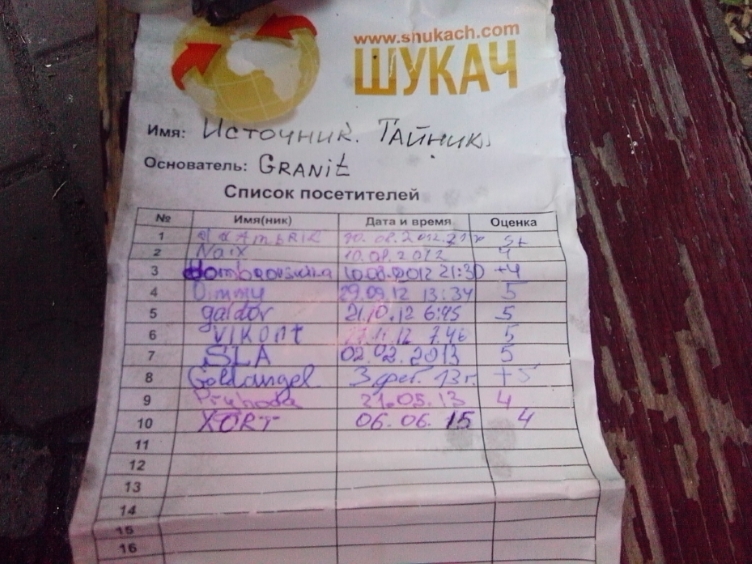 www.shukach.com
ШУКАЧ
Имя: Источник. Тайник.
Основатель: GRANit
Список посетителей
№ Имя(ник) Дата и время Оценка
1 10.08.2012 5+
2 Naix 10.08.2012 4
3 10.08.2012 21:30 +4
4 Dimmy 29.09.12 13:34 5
5 galdor 21.10.12 6:45 5
6 VIKONT .12 7.46 5
7 SLA 02.02.2013 5
8 Goldangel 3 фев. 13г. +5
9 21.05.13 4
10 XORT 06.06.15 4
11
12
13
14
15
16